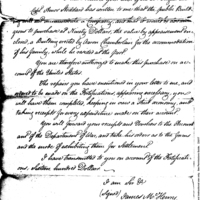 Capt. Amos Stoddard has written to me that the public Build
ings will not accommodate a Company, and that it would be
to purchase at Ninety Dollars, the value by appraisement
dered, a Building erected by Aaron Chamberlain for the accommodation
of his family, while he resided at the fort.
You are therefore authorized to make this purchase on ac
count of the United States
The repairs you have mentioned in your letter to me, and
to be made on the Fortifications appearing necessary, you
will have them completed, keeping in view a strict economy, and
taking receipts for every expenditure made on their account
You will forward your receipts and Vouchers to the Account
ant of the Department of War, and take his orders as to the forms
and the mode of exhibiting them for Settlement.
I have transmitted to you on account of the Fortifica
tions, Sixteen hundred Dollars.
I am Sir &c
(Signed)
James McHenry